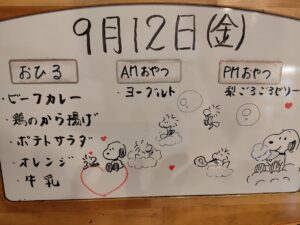 9月12日(金)
おひる
・ビーフカレー
・鶏のから揚げ
・ポテトサラダ
・オレンジ
・牛乳
AMおやつ
・ヨーグルト
PMおやつ
梨ごろごろゼリー